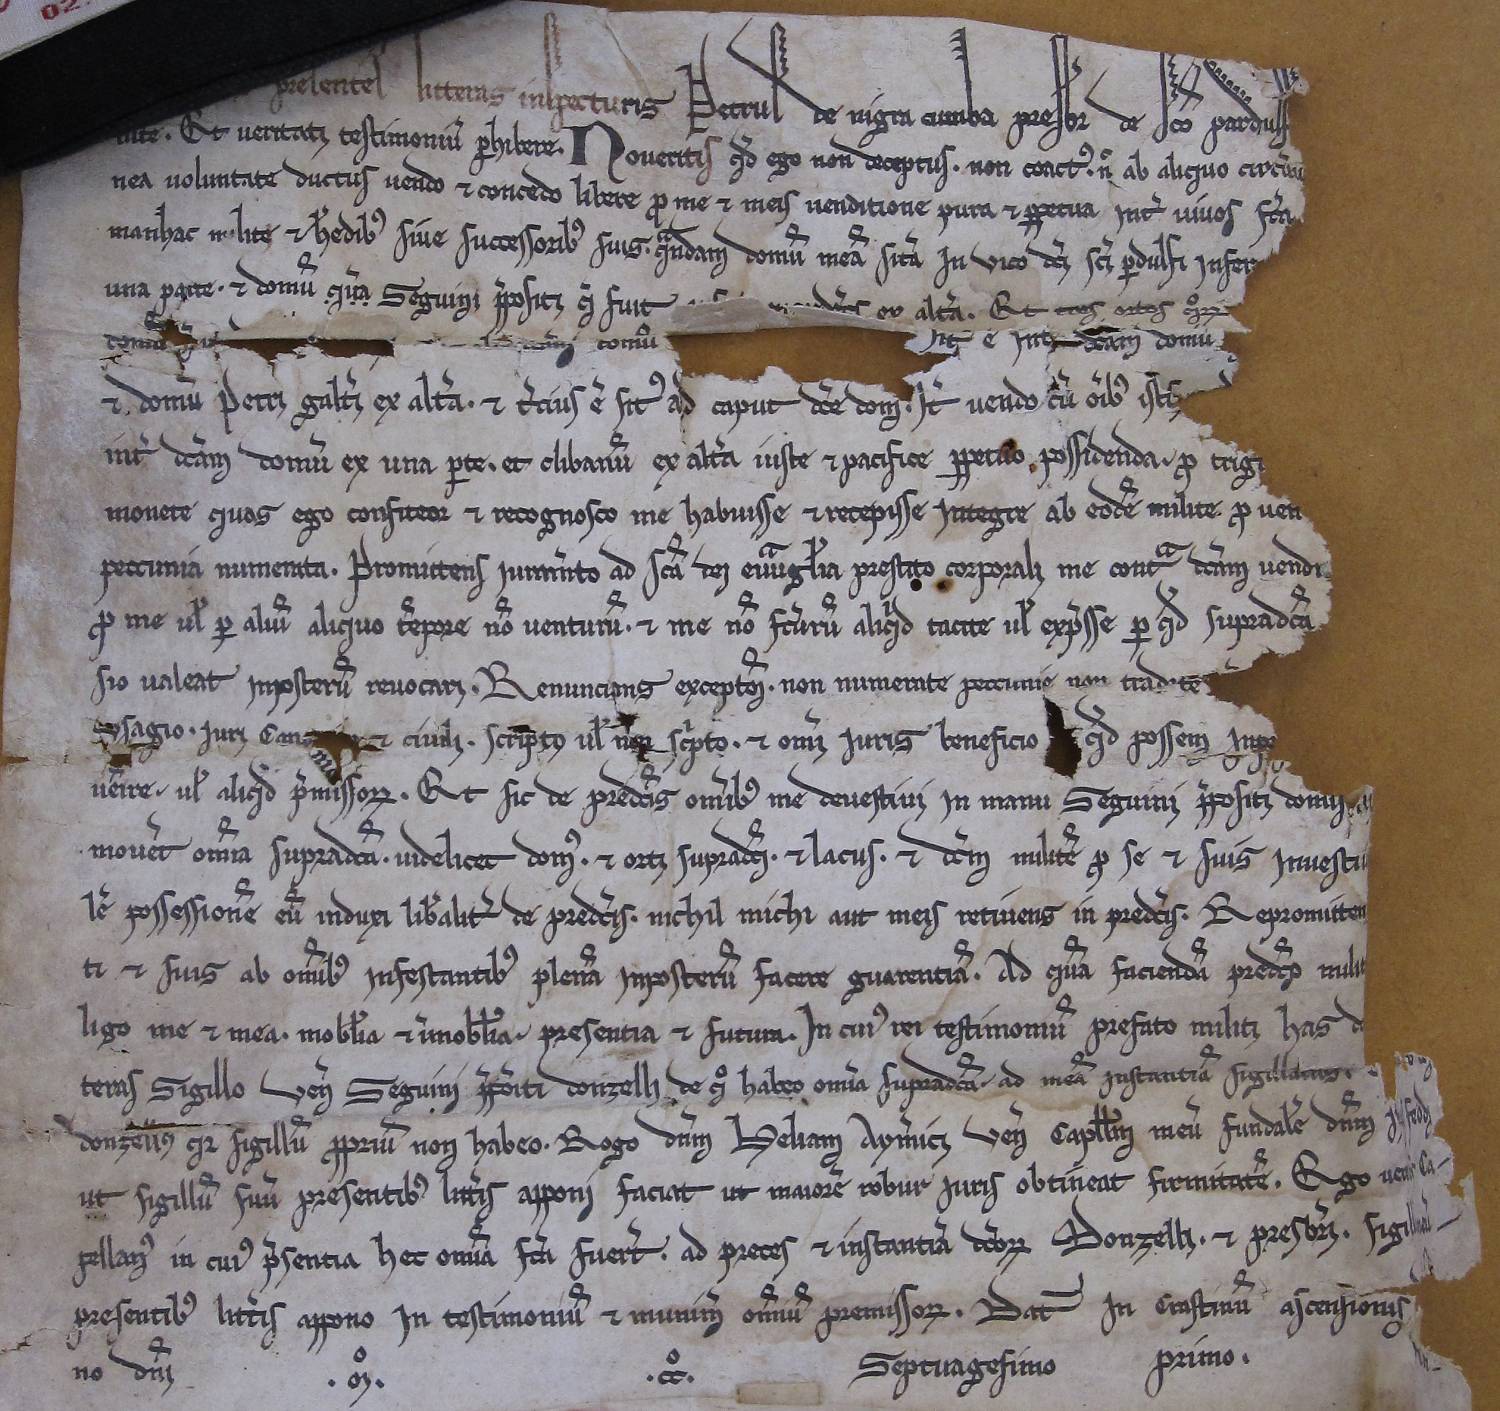 presentes litteras inspecturis Petrus de nigra cumba presbr de sco pardulf
Et veritati testimoniu phibere. Noveritis qd ego non deceptus. non coact9. n ab aliquo
nea voluntate ductus vendo et concedo libere p me et meis venditione pura et ppetua int vivos fca
manhac milite et hedib9 sive successorib9 suis. quandam domu mea sita In vico dci sci pdulfi Infer
una parte. et domu qua Seguini ppositi q fuit ex altra. Et tres ortos
domu Int dcam domu
et domu Petri galti ex altra. et tcius e sit9 ad caput dce dom9. It vendo cu oib9 istis
int dcam domu ex una pte. et clibanu ex altra iuste et pacifice ppetuo possidenda. p trigi
monete quas ego confiteor et recognosco me habuisse et recepisse Integre ab eode milite p ven
peccunia numerata. Promittens iuramto ad sca dei evvaglia prestito corporali me contra dcam vendi
p me vl per aliu aliquo tepore no venturu. et me no fcuru aliqid tacite vl expsse per qd supradca
sio valeat Inposteru revocari. Renuncians exceptoi. non numerate peccunie non tradite
Juri Can et civili. scripto vl non scpto. et omi Juris beneficio qd possem Inpo
veire. vl aliqd pmissor. Et sic de predcis omib9 me devestivi In manu Seguini ppositi domi
movet omia supradca. videlicet dom9. et orti supradci. et lacus. et dcm milite p se et suis Investi
le possessione eu induxi libalit de predcis. nichil michi aut meis retinens in predcis. Repromitten
ti et suis ab omib9 Infestantib9 plena Inposteru facere guarentia. Ad qua facienda predco milit
ligo me et mea. moblia et imoblia. presentia et futura. In cui9 rei testimoniu prefato militi has
teras Sigillo Ven Seguini ppoiti donzelli de qo habeo omia supradca. ad mea Instantia sigillatas.
donzell9 qr sigillu ppriu non habeo. Rogo dnm Heliam Aymici Ven Capllm meu fundale dnm
ut sigillu suu presentib9 littis apponi faciat ut maiore robur Juris obtineat firmitate. Ego
pellan9 in cui9 psentia hec omia fca fuert. ad preces et instantia dcor Donzelli. et presbri.
presentib9 littis appono In testimoniu et munim omiu premissor. Dat In Crastinu ascensionis
no dni .M. .CC. Septuagesimo primo.